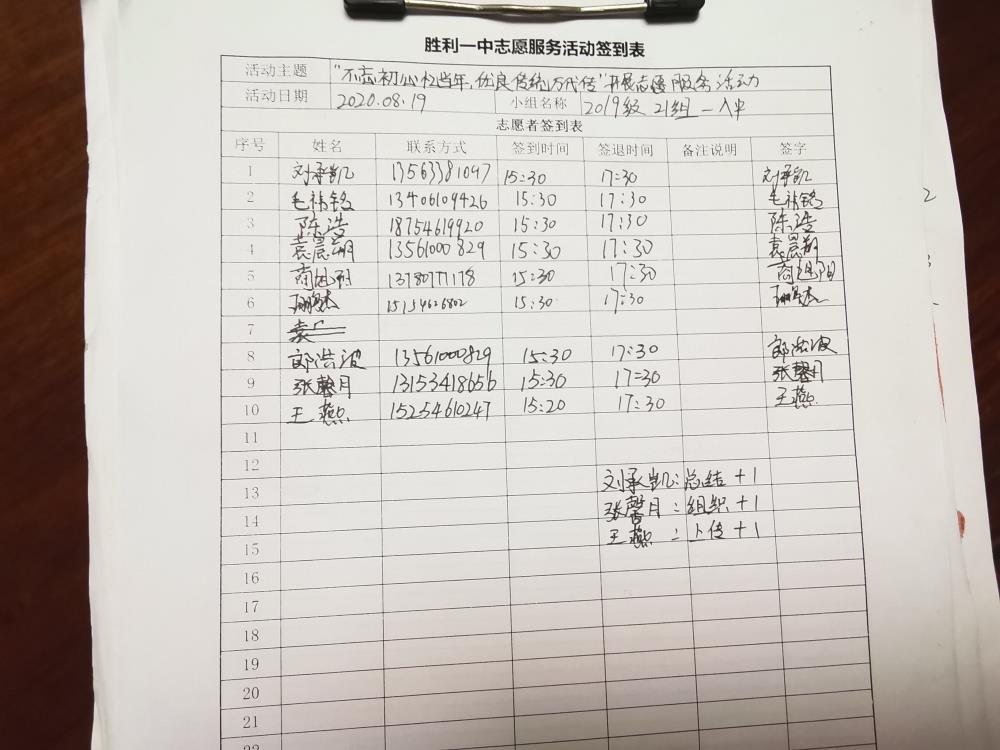 胜利一中志愿服务活动签到表
活动主题 "不忘初心忆当年,优良传统万代传"开展志愿服务活动
活动日期 2020.08.19 小组名称 2019级 21组 一入中
志愿者签到表
序号 姓名 联系方式 签到时间 签退时间 备注说明 签字
1 刘承凯 13563381097 15:30 17:30 刘承凯
2 毛祎铭 13406109426 15:30 17:30 毛祎铭
3 陈浩 18754619920 15:30 17:30 陈浩
4 袁晨翔 13561000829 15:30 17:30 袁晨翔
5 商 13780777178 15:30 17:30 商
6 15154626802 15:30 17:30
7
8 郎浩波 13561000829 15:30 17:30 郎浩波
9 张馨月 13153418656 15:30 17:30 张馨月
10 王燕 15254610247 15:20 17:30 王燕
11
12
13 刘承凯:总结+1
14 张馨月:组织+1
15 王燕:上传+1
16
17
18
19
20
21
22
2